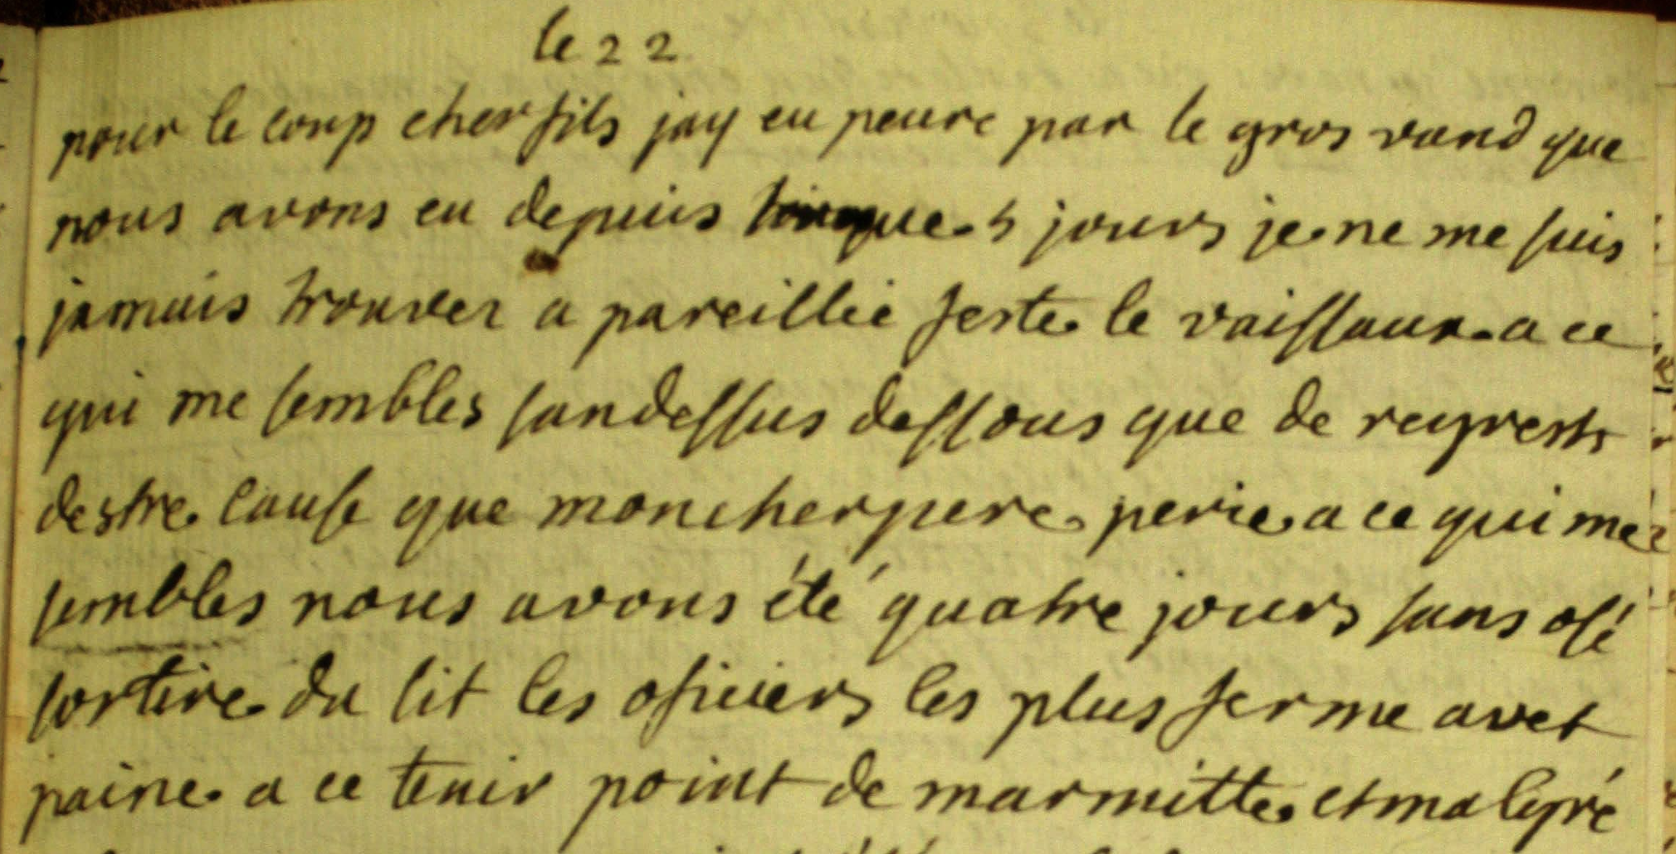 le 22
pour le coup cher fils jay eu peure par le gros vand que
nous avons eu depuis 5 jours je ne me suis
jamais trouver a pareillie feste le vaissaux a ce
qui me sembles sandessus dessous que de regrests
destre cause que moncherpere perie a ce qui me
sembles nous avons été quatre jours sans osé
sortire du lit les oficiers les plus ferme avet
paine a ce tenir point de marmitte et malgré